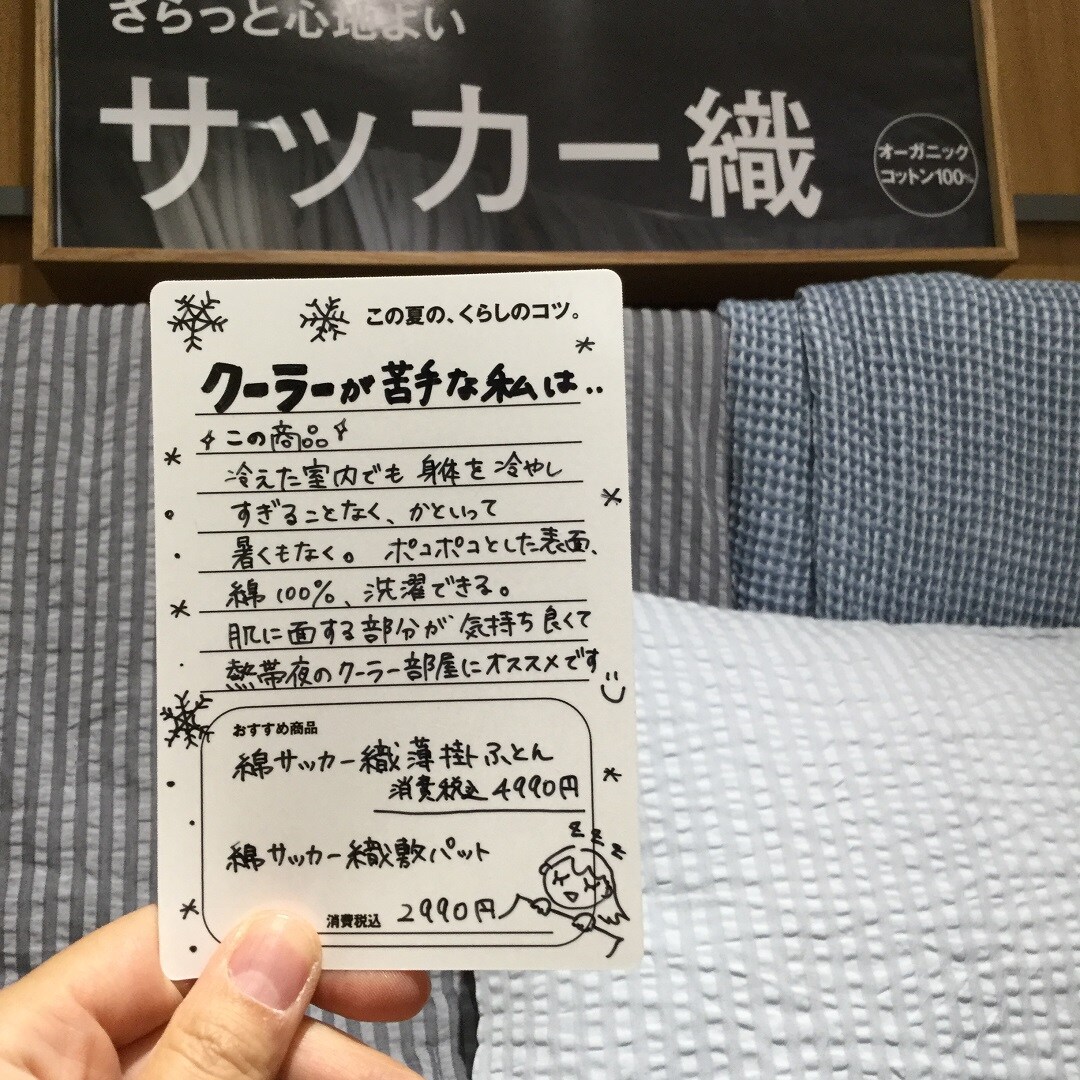 さらっと心地よい
サッカー織
オーガニック
コットン100%
この夏の、くらしのコツ。
クーラーが苦手な私は..
この商品
冷えた室内でも身体を冷やし
すぎることなく、かといって
暑くもなく。 ポコポコとした表面、
綿100%、洗濯できる。
肌に面する部分が気持ち良くて
熱帯夜のクーラー部屋にオススメです
おすすめ商品
綿サッカー織薄掛ふとん
消費税込 4990円
綿サッカー織敷パット
消費税込 2990円
z z z